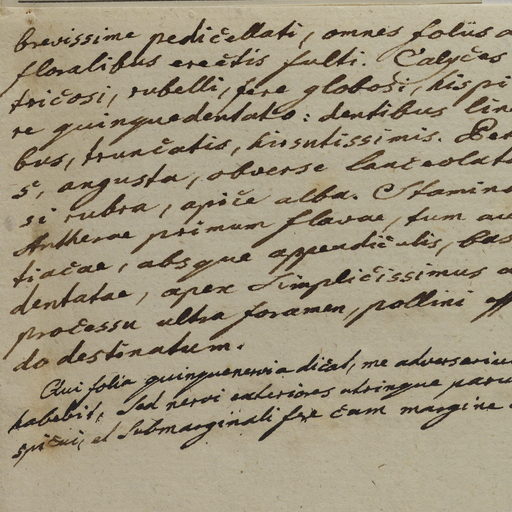 brevissime pedicellati, omnes foliis
floralibus erectis fulti. Calyces
tricosi, rubelli, fere globosi, hispi
re quinquedentato: dentibus line
bus, truncatis, hirsutissimis. Pet
5, angusta, obverse lanceolata
si rubra, apice alba. Stamina
Antherae primum flavae, tum au
tiacae, absque appendiculis, bas
dentatae, apex simplicissimus
processu ultra foramen, pollini eff
do destinatum.
Qui folia quinquenervia dicat, me adversariu
habebit, sed nervi exteriores utrinque paru
spicui, et submarginali fere cum margine